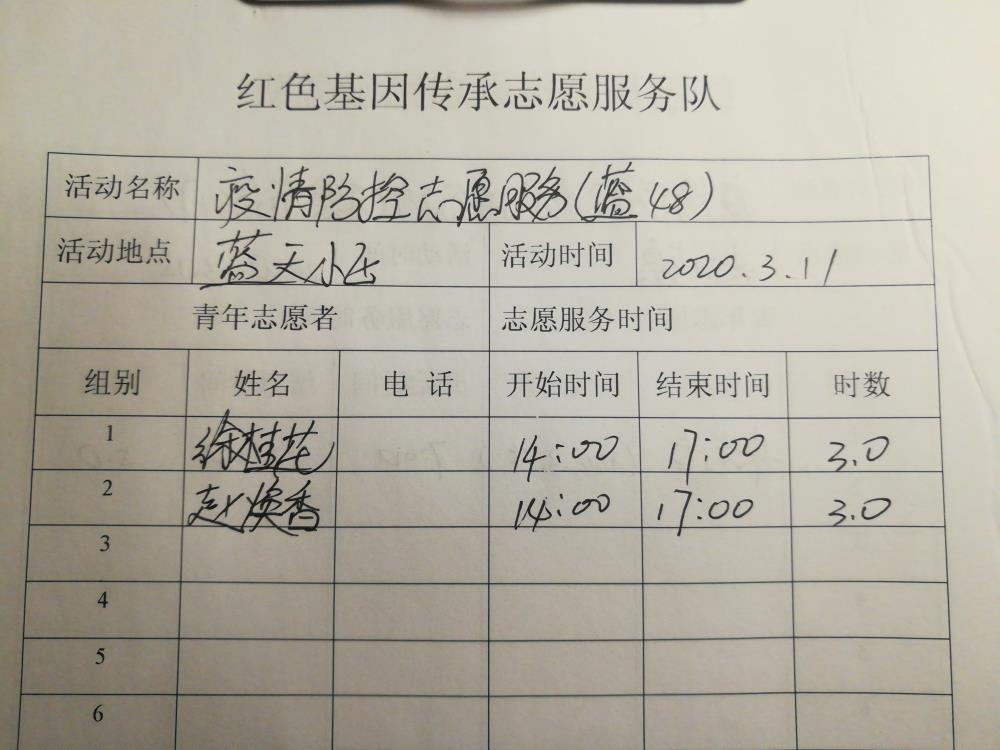 红色基因传承志愿服务队
活动名称 疫情防控志愿服务(蓝48)
活动地点 蓝天小区 活动时间 2020.3.11
青年志愿者 志愿服务时间
组别 姓名 电 话 开始时间 结束时间 时数
1 徐桂花 14:00 17:00 3.0
2 赵焕香 14:00 17:00 3.0
3
4
5
6